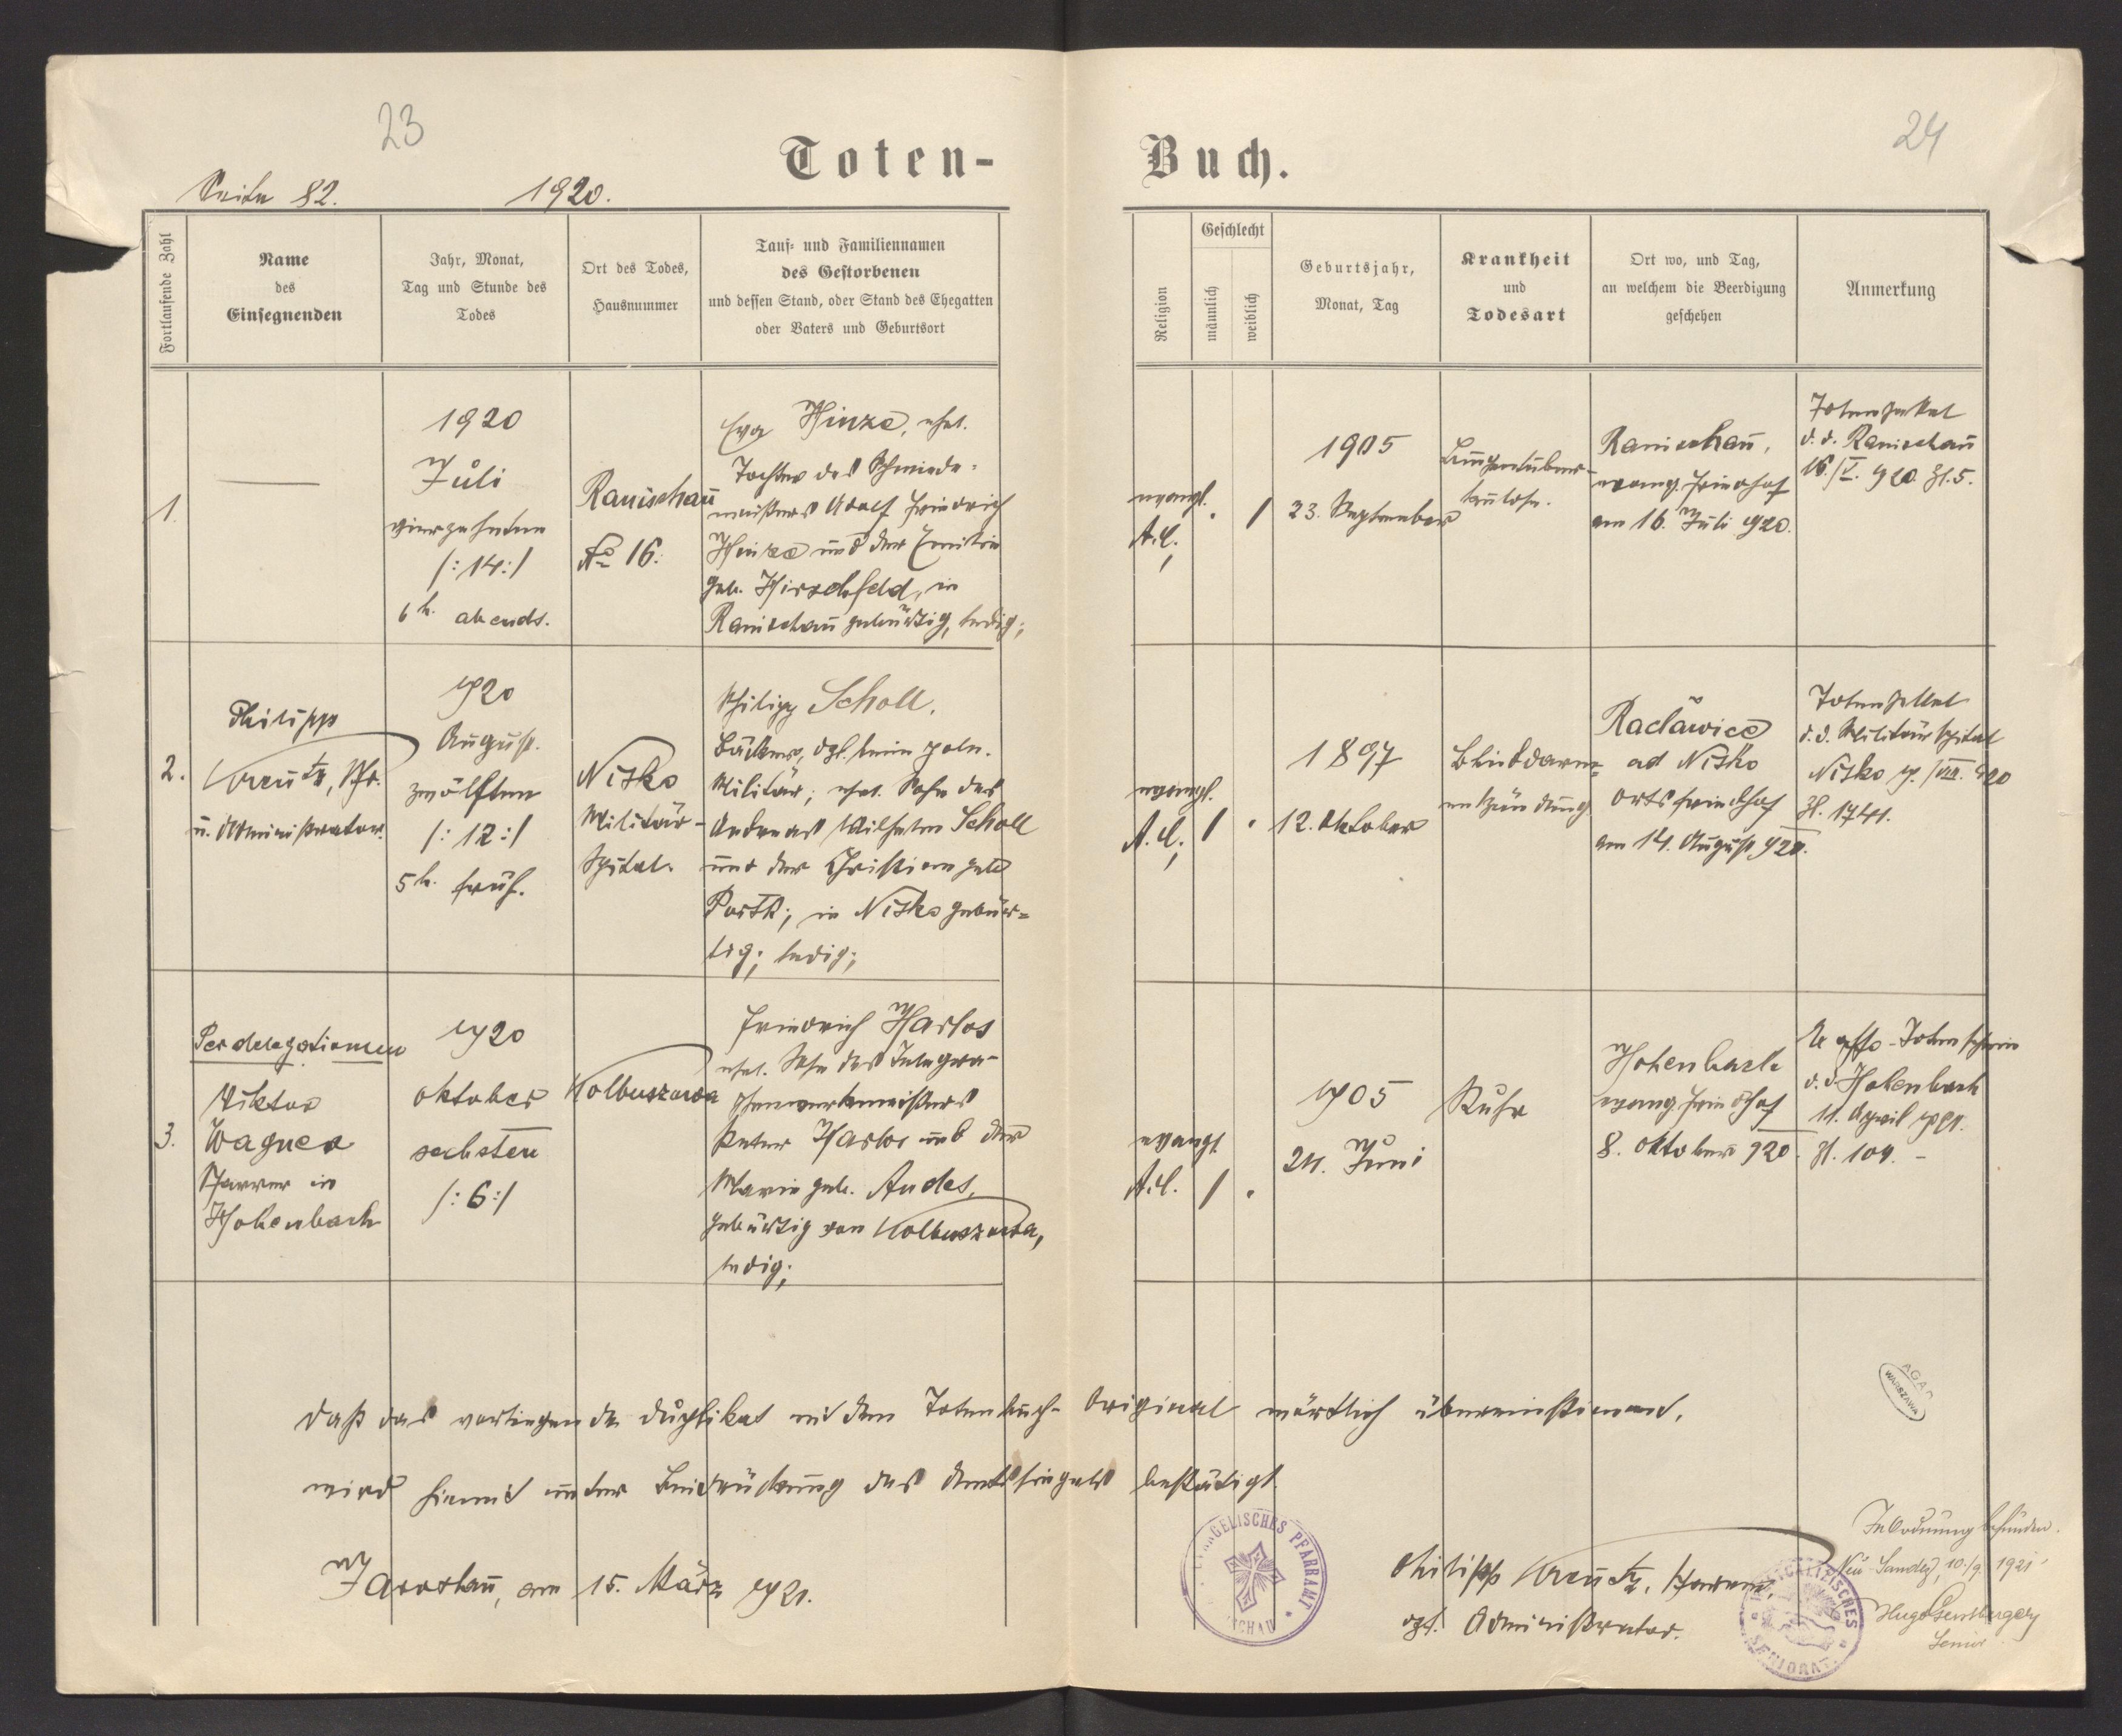 23
24
Toten-Buch.
Seite 82. 1920.
Fortlaufende Zahl
Name
des
Einsegnenden
Jahr, Monat,
Tag und Stunde des
Todes
Ort des Todes,
Hausnummer
Tauf- und Familiennamen
des Gestorbenen
und dessen Stand, oder Stand des Ehegatten
oder Vaters und Geburtsort
Religion
Geschlecht
männlich
weiblich
Geburtsjahr,
Monat, Tag
Krankheit
und
Todesart
Ort wo, und Tag,
an welchem die Beerdigung
geschehen
Anmerkung
1.
1920
Juli
vierzehnten
/:14:/
6h. abends.
Ranischau
No 16.
Eva Hinze, ehel.
Tochter des Schmiede-
meisters Adolf Friedrich
Hinze und der Emilie
geb. Hirschfeld, in
Ranischau gebürtig, ledig;
evangl.
A.C.
. /
1905
23. September
Lungentuber-
kulose.
Ranischau,
evang. Friedhof
am 16. Juli 920.
Totenzettel
d.d. Ranischau
16./V. 920. Zl. 5.
2.
Philipp
Kreutz, Pfr.
u. Administrator.
1920
August.
zwölften
/:12:/
5h. früh.
Nisko
Militär-
Spital.
Philipp Scholl,
Bäcker, dzt. beim poln.
Militär; ehel. Sohn des
Andreas Wilhelm Scholl
und der Christiane geb.
in Nisko gebür-
tig; ledig;
evangl.
A.C.
/ .
1897
12. Oktober
Blinddarm-
entzündung
Racławice
ad Nisko
Ortsfriedhof
am 14. August 920.
Totenzettel
d.d. Militärspital
Nisko /VIII. 920
Zl. 1741.
3.
Per delegationem
Viktor
Wagner
Pfarrer in
Hohenbach
1920
Oktober
sechsten
/:6:/
Kolbuszowa
Friedrich Harlos
ehel. Sohn des Telegra-
phenwerkmeisters
Peter Harlos und der
Marie geb. Andes,
gebürtig von Kolbuszowa,
ledig;
evangl.
A.C.
/ .
1905
24. Juni
Ruhr
Hohenbach
evang. Friedhof
8. Oktober 920.
Totenschein
d.d. Hohenbach
11. April 1921.
Zl. 104. -
Daß das vorliegende Duplikat mit dem Totenbuch-Original wörtlich übereinstimmt,
wird hiemit unter Beidrückung des Amtssiegels bestätigt.
Jaroslau, am 15. März 1921.
EVANGELISCHES PFARRAMT
Philipp Kreutz, Pfarrer,
dzt. Administrator.
AGAD
WARSZAWA
In Ordnung befunden.
Neu-Sandez, 10./9. 1921
Hugo
Senior
SENIORAT